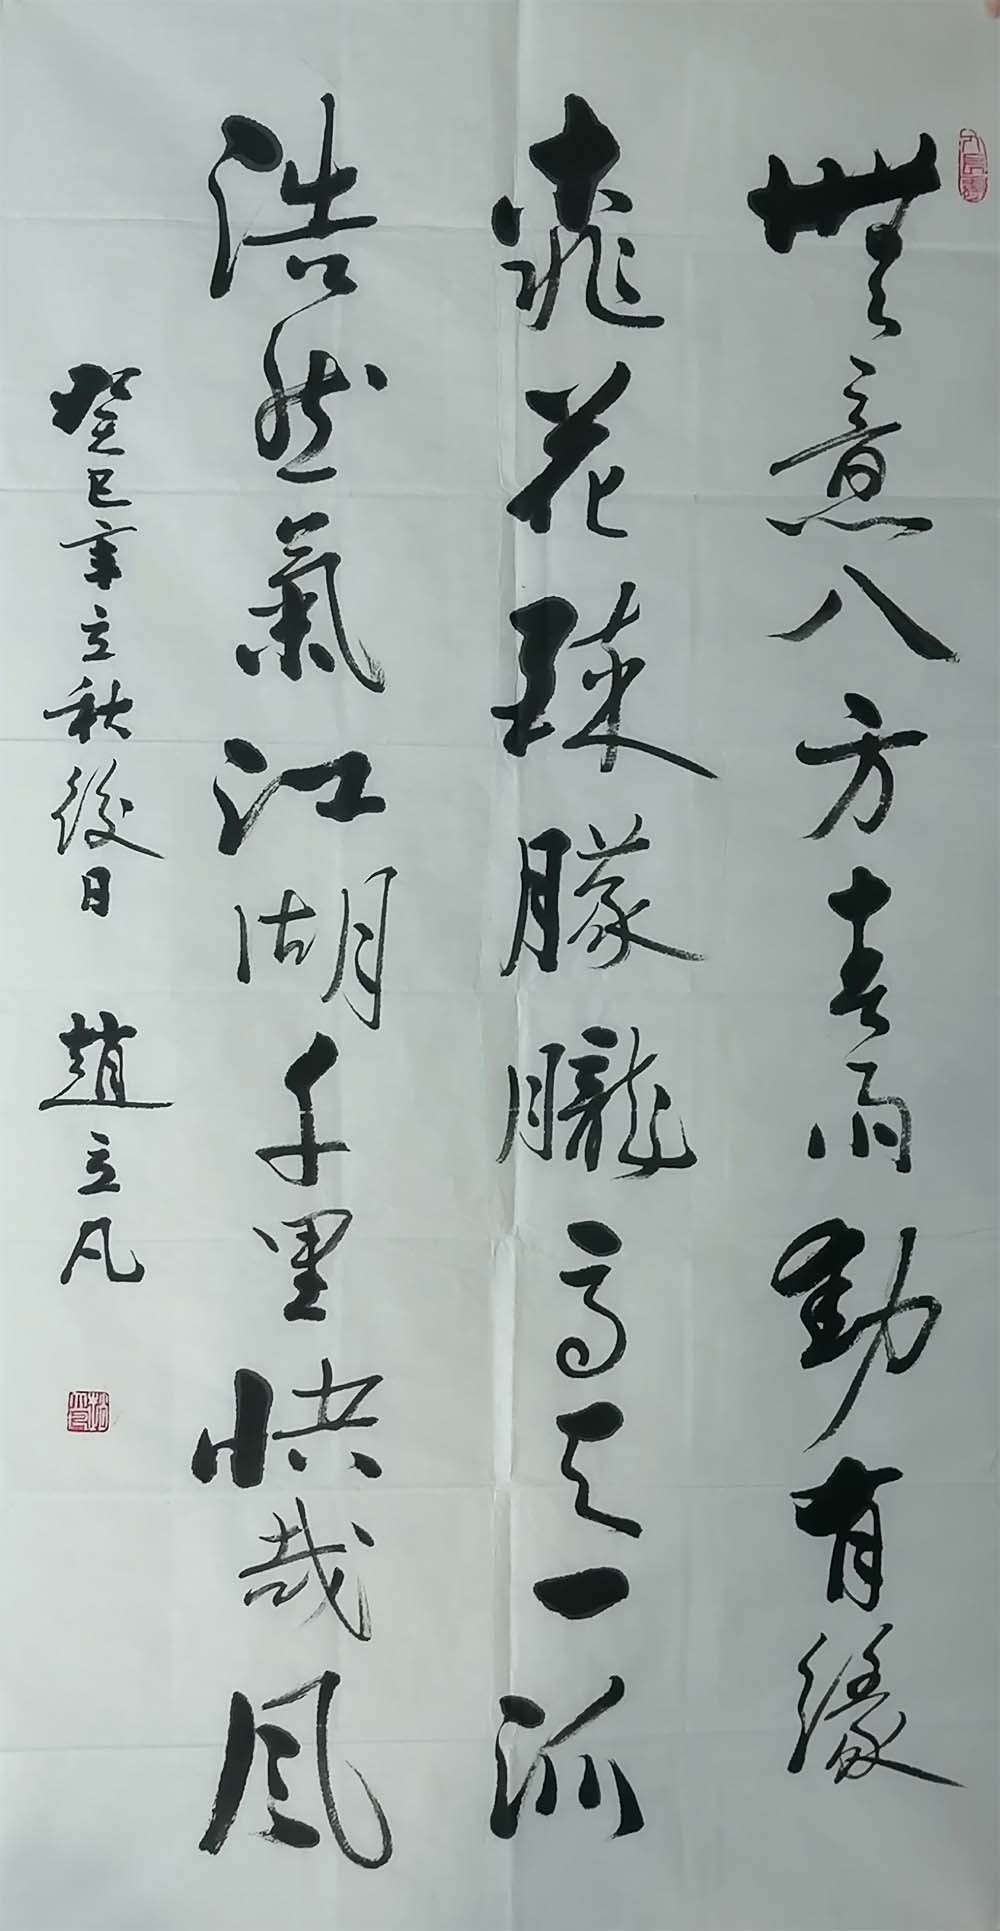 無意八方喜雨勤有緣
花球朦朧高天一派
浩然氣江湖千里快哉風
癸巳年立秋後日 趙立凡